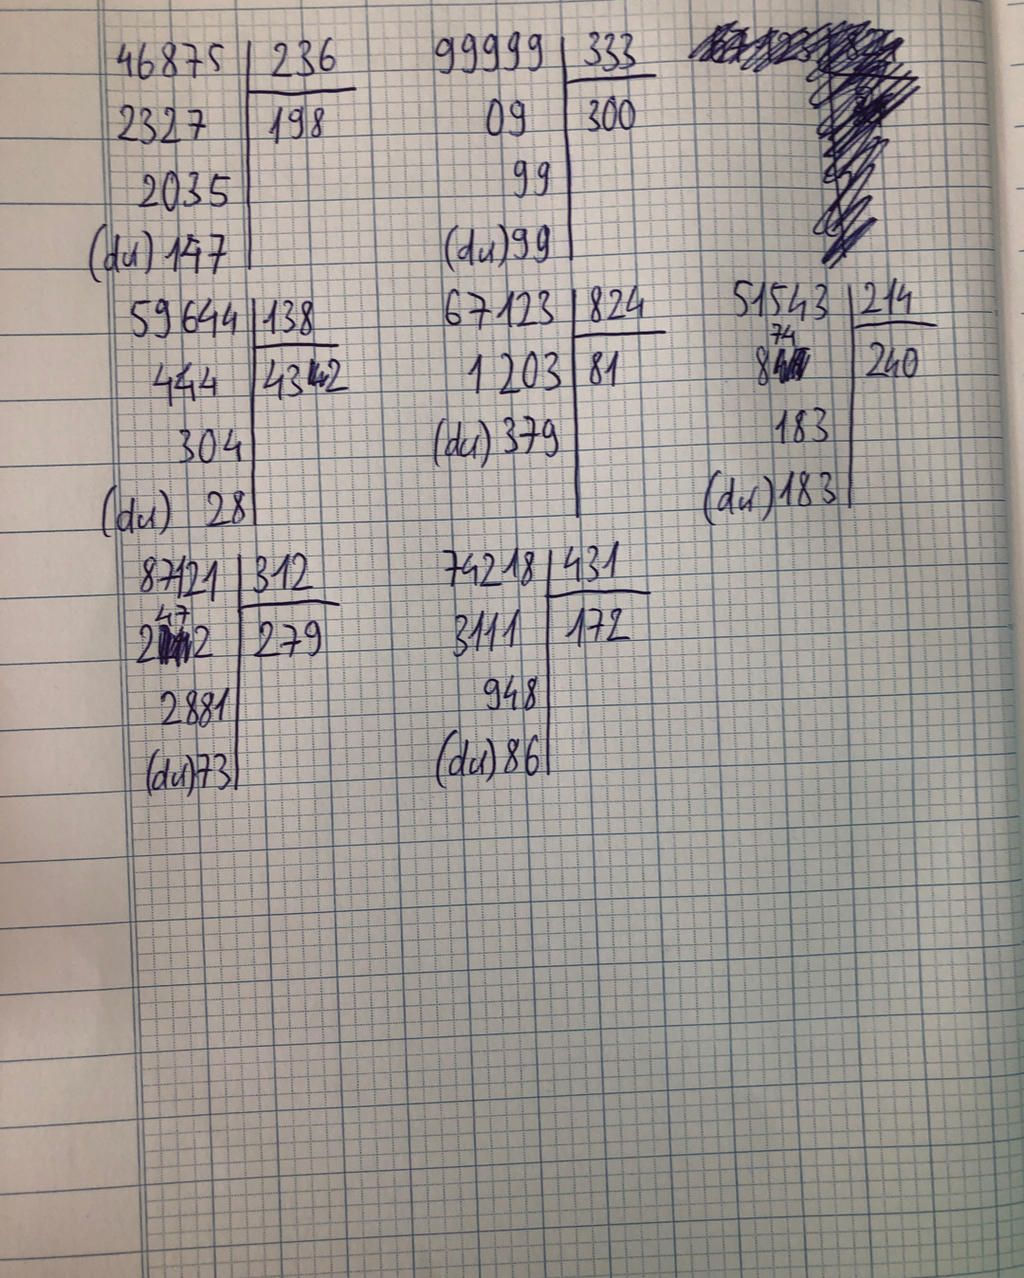 46875 236
2327 198
2035
(dư) 147
99999 333
09 300
99
(dư) 99
59644 138
444 432
304
(dư) 28
67123 824
1203 81
(dư) 379
51543 214
874 240
183
(dư) 183
87121 312
2472 279
2881
(dư) 73
74218 431
3111 172
948
(dư) 86